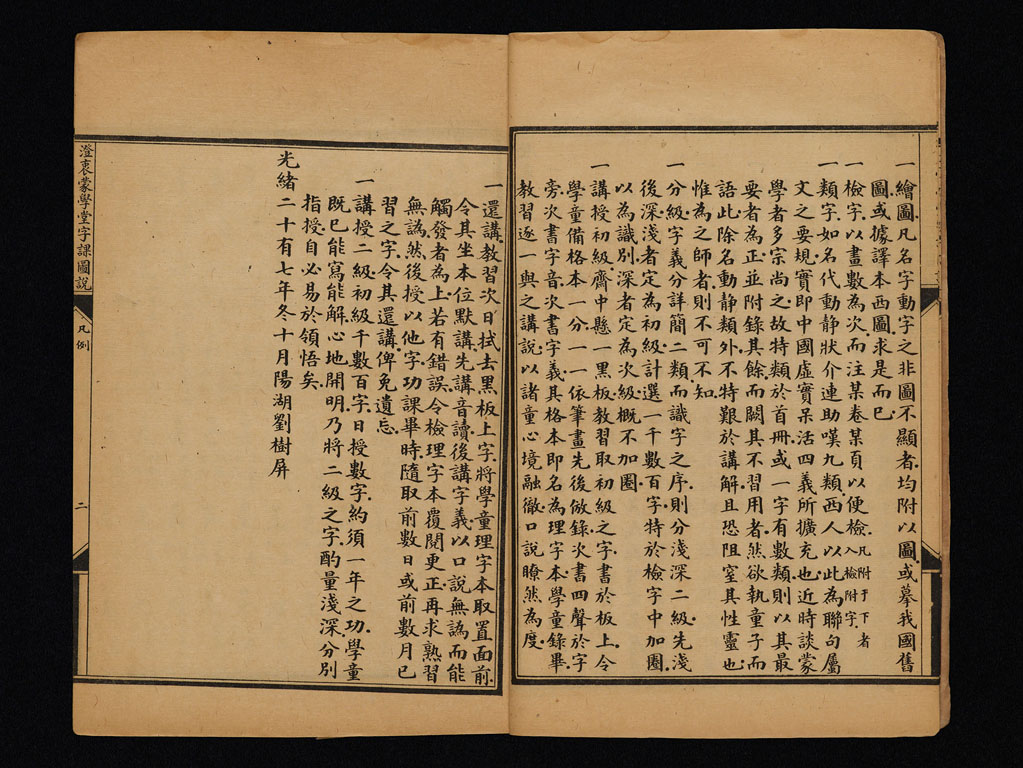 一繪圖凡名字動字之非圖不顯者均附以圖或摹我國舊
圖或據譯本西圖求是而已
一檢字以畫數為次而注某卷某頁以便檢凡附于下者入檢附字
一類字如名代動静狀介連助嘆九類西人以此為聯句屬
文之要規實即中國虛實呆活四義所擴充也近時談蒙
學者多宗尚之故特類於首冊或一字有數類則以其最
要者為正並附錄其餘而闕其不習用者然欲執童子而
語此除名動静類外不特艱於講解且恐阻窒其性靈也
惟為之師者則不可不知
一分級字義分詳簡二類而識字之序則分淺深二級先淺
後深淺者定為初級計選一千數百字特於檢字中加圈
以為識別深者定為次級概不加圈
一講授初級齋中懸一黑板教習取初級之字書於板上令
學童備格本一分一一依筆畫先後倣錄次書四聲於字
旁次書字音次書字義其格本即名為理字本學童錄畢
教習逐一與之講說以諸童心境融徹口說瞭然為度
一還講教習次日拭去黑板上字將學童理字本取置面前
令其坐本位默講先講音讀後講字義以口說無譌而能
觸發者為上若有錯誤令檢理字本覆閱更正再求熟習
無譌然後授以他字功課畢時隨取前數日或前數月已
習之字令其還講俾免遺忘
一講授二級初級千數百字日授數字約須一年之功學童
既已能寫能解心地開明乃將二級之字酌量淺深分別
指授自必易於領悟矣
光緒二十有七年冬十月陽湖劉樹屏
澄衷蒙學堂字課圖說
凡例
二